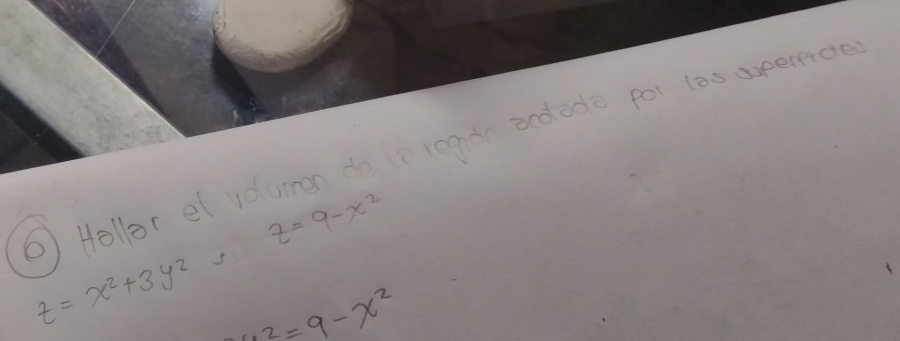 6 Hallar el volumen de la región acotada por las superficies
z = x²+3y² , z = 9-x²
y² = 9-x²